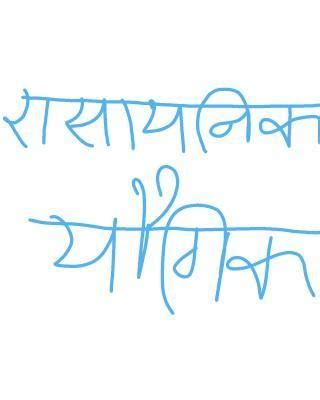 रासायनिक
यौगिक